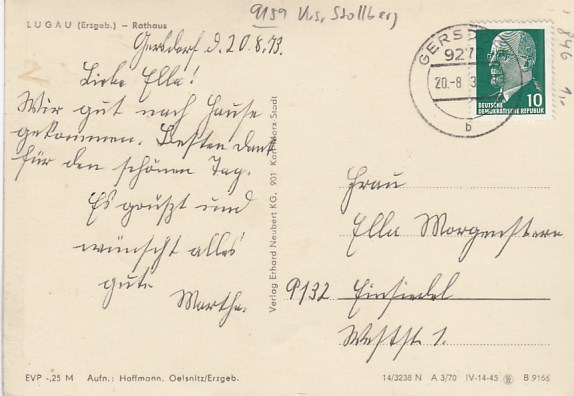 LUGAU (Erzgeb.) – Rathaus
9159 Krs. Stollberg
Gersdorf d. 20.8.73.
Liebe Ella!
Wir gut nach Hause
gekommen. Besten Dank
für den schönen Tag.
Es grüßt und
wünscht alles
gute
Marthe.
GERSD
927
20.-8. 3
b
10
DEUTSCHE
DEMOKRATISCHE REPUBLIK
846
Verlag Erhard Neubert KG, 901 Karl-Marx-Stadt
Frau
Ella Morgenstern
9132 Einsiedel
Weststr. 1.
EVP -,25 M Aufn.: Hoffmann, Oelsnitz/Erzgeb.
14/3238 N A 3/70 IV-14-45 B 9166